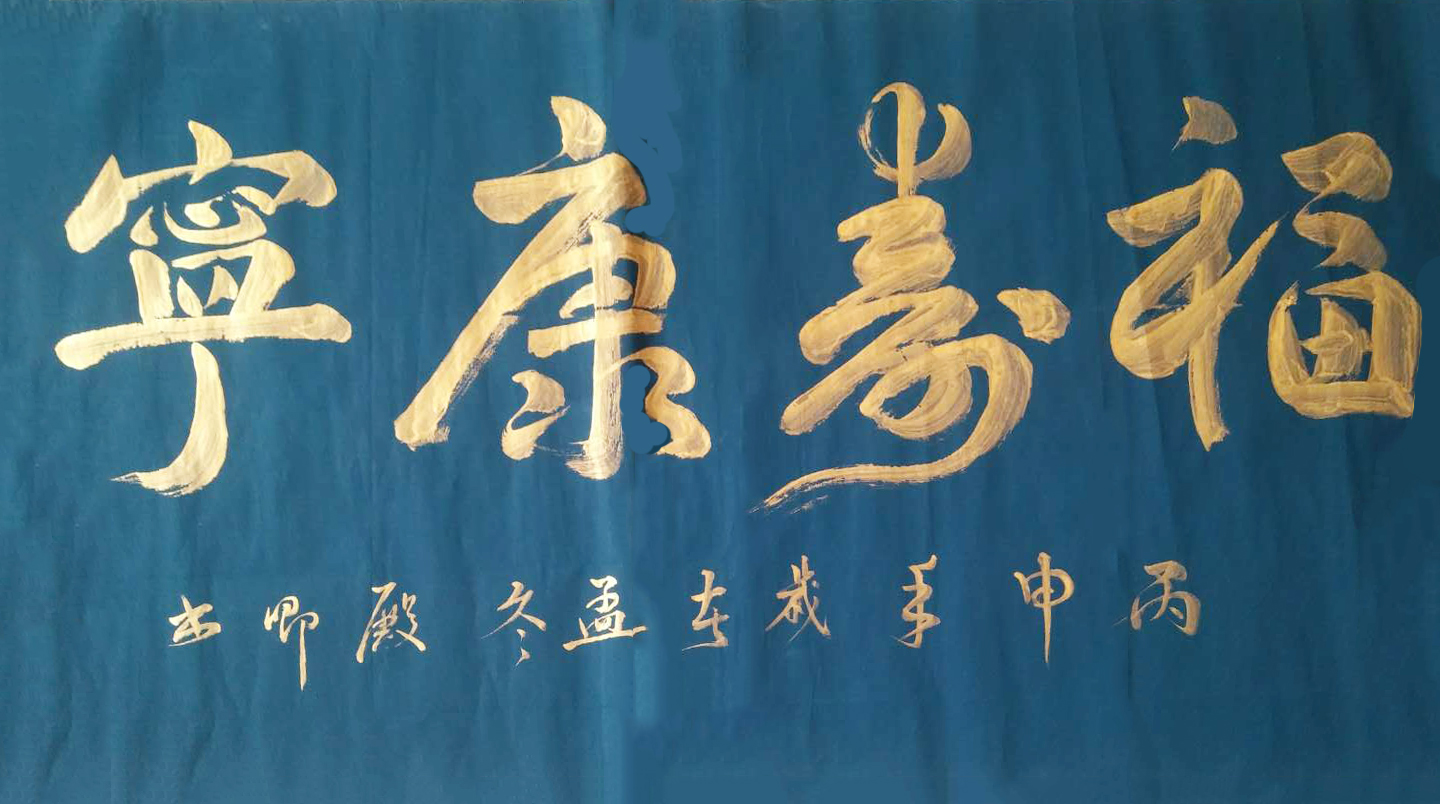 福壽康寧
丙申年歲在孟冬殿卿书